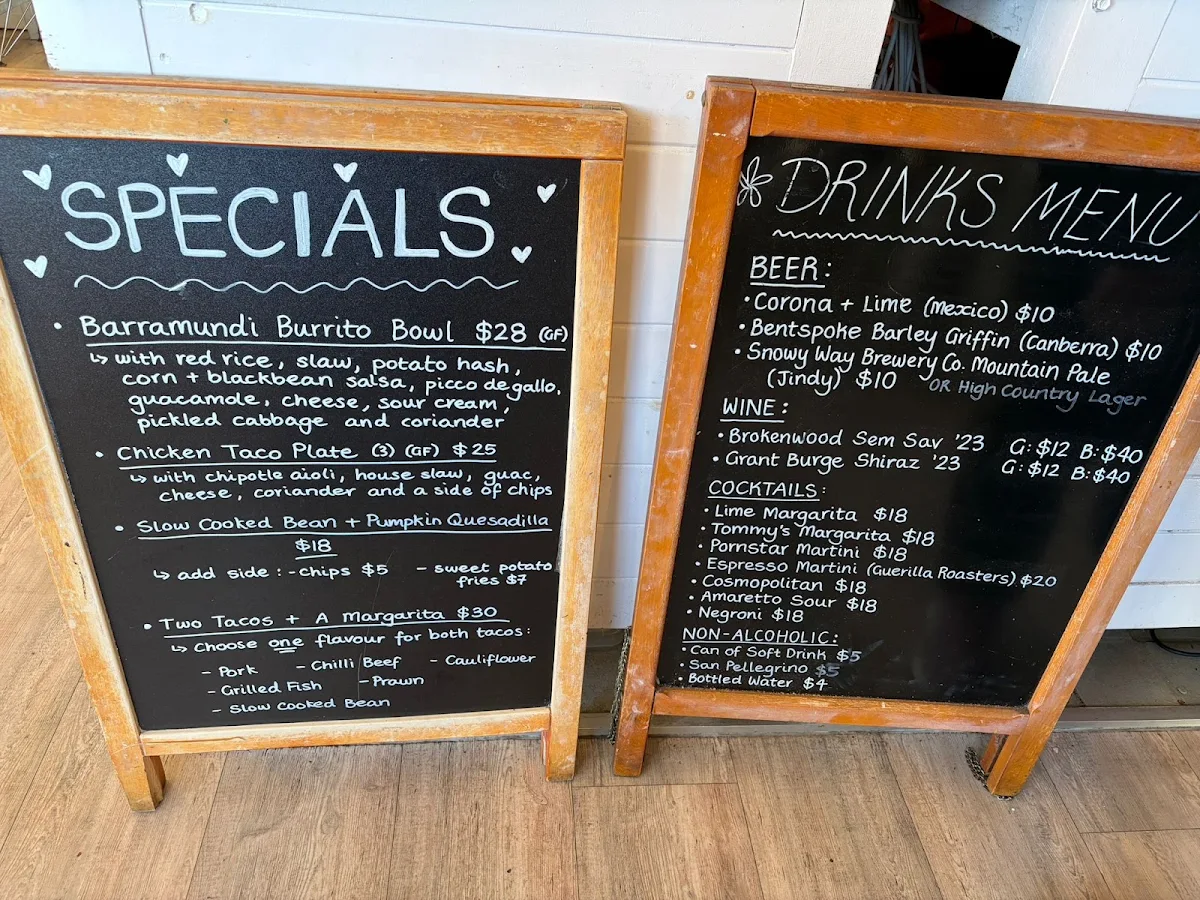 SPECIALS
• Barramundi Burrito Bowl $28 (GF)
↳ with red rice, slaw, potato hash,
corn + blackbean salsa, picco de gallo,
guacamole, cheese, sour cream,
pickled cabbage and coriander
• Chicken Taco Plate (3) (GF) $25
↳ with chipotle aioli, house slaw, guac,
cheese, coriander and a side of chips
• Slow Cooked Bean + Pumpkin Quesadilla
$18
↳ add side : - chips $5 - sweet potato
fries $7
• Two Tacos + A Margarita $30
↳ Choose one flavour for both tacos:
- Pork - Chilli Beef - Cauliflower
- Grilled Fish - Prawn
- Slow Cooked Bean
DRINKS MENU
BEER:
• Corona + Lime (Mexico) $10
• Bentspoke Barley Griffin (Canberra) $10
• Snowy Way Brewery Co. Mountain Pale
(Jindy) $10 OR High Country Lager
WINE:
• Brokenwood Sem Sav '23 G: $12 B: $40
• Grant Burge Shiraz '23 G: $12 B: $40
COCKTAILS:
• Lime Margarita $18
• Tommy's Margarita $18
• Pornstar Martini $18
• Espresso Martini (Guerilla Roasters) $20
• Cosmopolitan $18
• Amaretto Sour $18
• Negroni $18
NON-ALCOHOLIC:
• Can of Soft Drink $5
• San Pellegrino $5
• Bottled Water $4